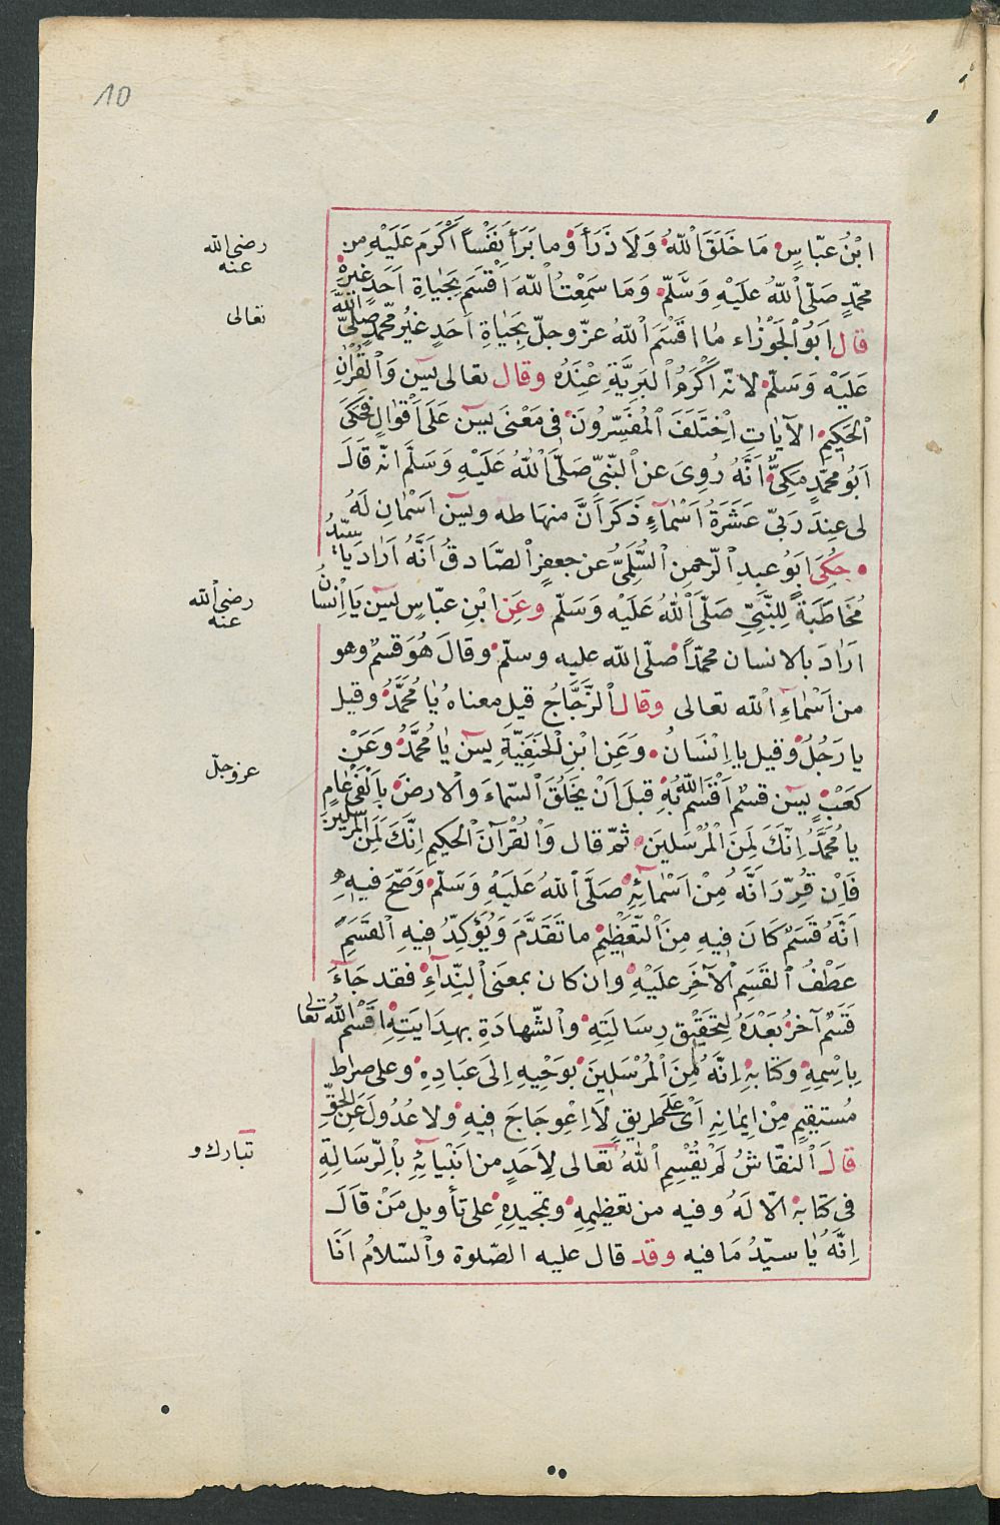 10
ابْنُ عبّاسٍ مَا خَلَقَ اللّٰهُ وَلَا ذَرَأَ وَما بَرَأَ نَفْساً اَكْرَمَ عَلَيْهِ من
رضى الله عنه
محمّدٍ صَلّى اللّٰهُ عَلَيْهِ وَسَلّمَ وَمَا سَمِعْتُ اللّٰهَ اَقْسَمَ بِحَيٰاةِ اَحَدٍ غَيْرِهْ
تعالى
قال اَبُو الْجَوْزٰاء مٰا اقْسَمَ اللّٰهُ عزّ وجلّ بِحَيٰاةِ اَحَدٍ غَيْرُ محمّدٍ صَلّى اللّٰه
عَلَيْهِ وَسَلّمَ لانّه اَكْرَمُ الْبَرِيَّةِ عِنْدَهُ وقال تعالى يسٓ وَالْقُرْاٰنِ
الْحَكِيمِ الآيٰاتِ اِخْتَلَفَ الْمُفَسِّرُونَ فى مَعْنَى يسٓ عَلَى اَقْوٰالٍ فَحَكَى
اَبُو محمّدٍ مَكِىٌّ اَنَّهُ رُوِىَ عن النّبّى صَلَّى اللّٰهُ عَلَيْهِ وَسَلَّمَ انّه قَالَ
لى عِندَ رَبّى عَشَرَةُ اَسْمٰآءٍ ذَكَرَ اَنَّ منهَا طه ويسٓ اسْمٰانِ لَهُ
حكَىَ اَبُو عبدِ الرّحمنِ السُّلَمِىُّ عن جعفرٍ الصّادقُ اَنَّهُ اَرٰادَ يَا سيّدُ
مُخَاطَبَةً لِلنَّبِىِّ صَلّى اللّٰهُ عَلَيْه وَسَلّم وعَن ابْنِ عبّاسٍ يسٓ يَا اِنْسانُ
رضى الله عنه
ارَادَ بالانسان محمّداً صَلّى اللّه عليه وسلّم وقالَ هُوَ قسَمٌ وهو
من اَسْمٰاءِ اللّه تعالى وقال الزَّجَّاجُ قيل معناهُ يٰا مُحَمَّدُ وقيل
يا رَجُلُ وقيل يا اِنْسَانُ وَعَنِ ابْنِ الْحَنَفِيَّةِ يسٓ يٰا مُحمَّدُ وَعَنْ
كعَبْ يسٓ قسَمٌ اَقْسَمَ اللّٰه بُهِ قبلَ اَنْ يَخْلُقَ السّمٰاءَ والارضَ بِاَلْفَىْ عٰامٍ
عز وجلّ
يا مُحَمَّدُ اِنَّكَ لَمِنَ الْمُرْسَلينَ ثمّ قال وَالْقُرْآنَ الْحَكيمِ اِنَّكَ لَمِنَ المُرْسَلِينَ
فَاِن قُرِّرَ اَنَّهُ مِنْ اَسْمٰائِهِ صَلَّى اللّٰهُ عَلَيْهِ وَسَلّمْ وَصَحَّ فيهِ
اَنَّهُ قَسَمٌ كَانَ فيهِ مِنَ التَّعْظِيْمِ ما تَقَدَّمَ وَيُؤَكِّدُ فيهِ الْقَسَمِ
عَطْفُ القَسَمِ الْآخَرِ عَلَيْهِ وان كان بمعنَى النِّدٰآءِ فقد جَآءَ
قَسَمٌ آخَرُ بَعْدَهُ لِتَحْقِيْق رِسَالَتِه والشّهٰادَةِ بهدٰايَتِهِ اَقْسَمَ اللّٰهُ تعالى
بِاسْمِهِ وكتابِهِ اِنَّهُ لَمِنَ الْمُرْسَلِيْنَ بوَحْيِهِ اِلَى عِبَادِهِ وعلى صراط
مُستَقِيمٍ مِنْ اِيمٰانِهِ اَىْ عَلَى طَريقٍ لَا اِعْوِجَاجَ فيهِ ولا عُدُولَ عَنِ الْحَقِّ
قالَ النقّاشُ لَمْ يُقْسِمِ اللّٰهُ تَعالى لِاَحَدٍ من اَنْبِيٰائِهِ بالْرّسَالَةِ
تبارك و
فى كتابه الّا لَهُ وفيه من تعظيمِهِ وتمجيدِهِ على تأويل مَنْ قَالَ
اِنَّهُ يٰا سيّدُ مَا فيه وقد قال عليه الصّلوة والسّلامُ اَنَا